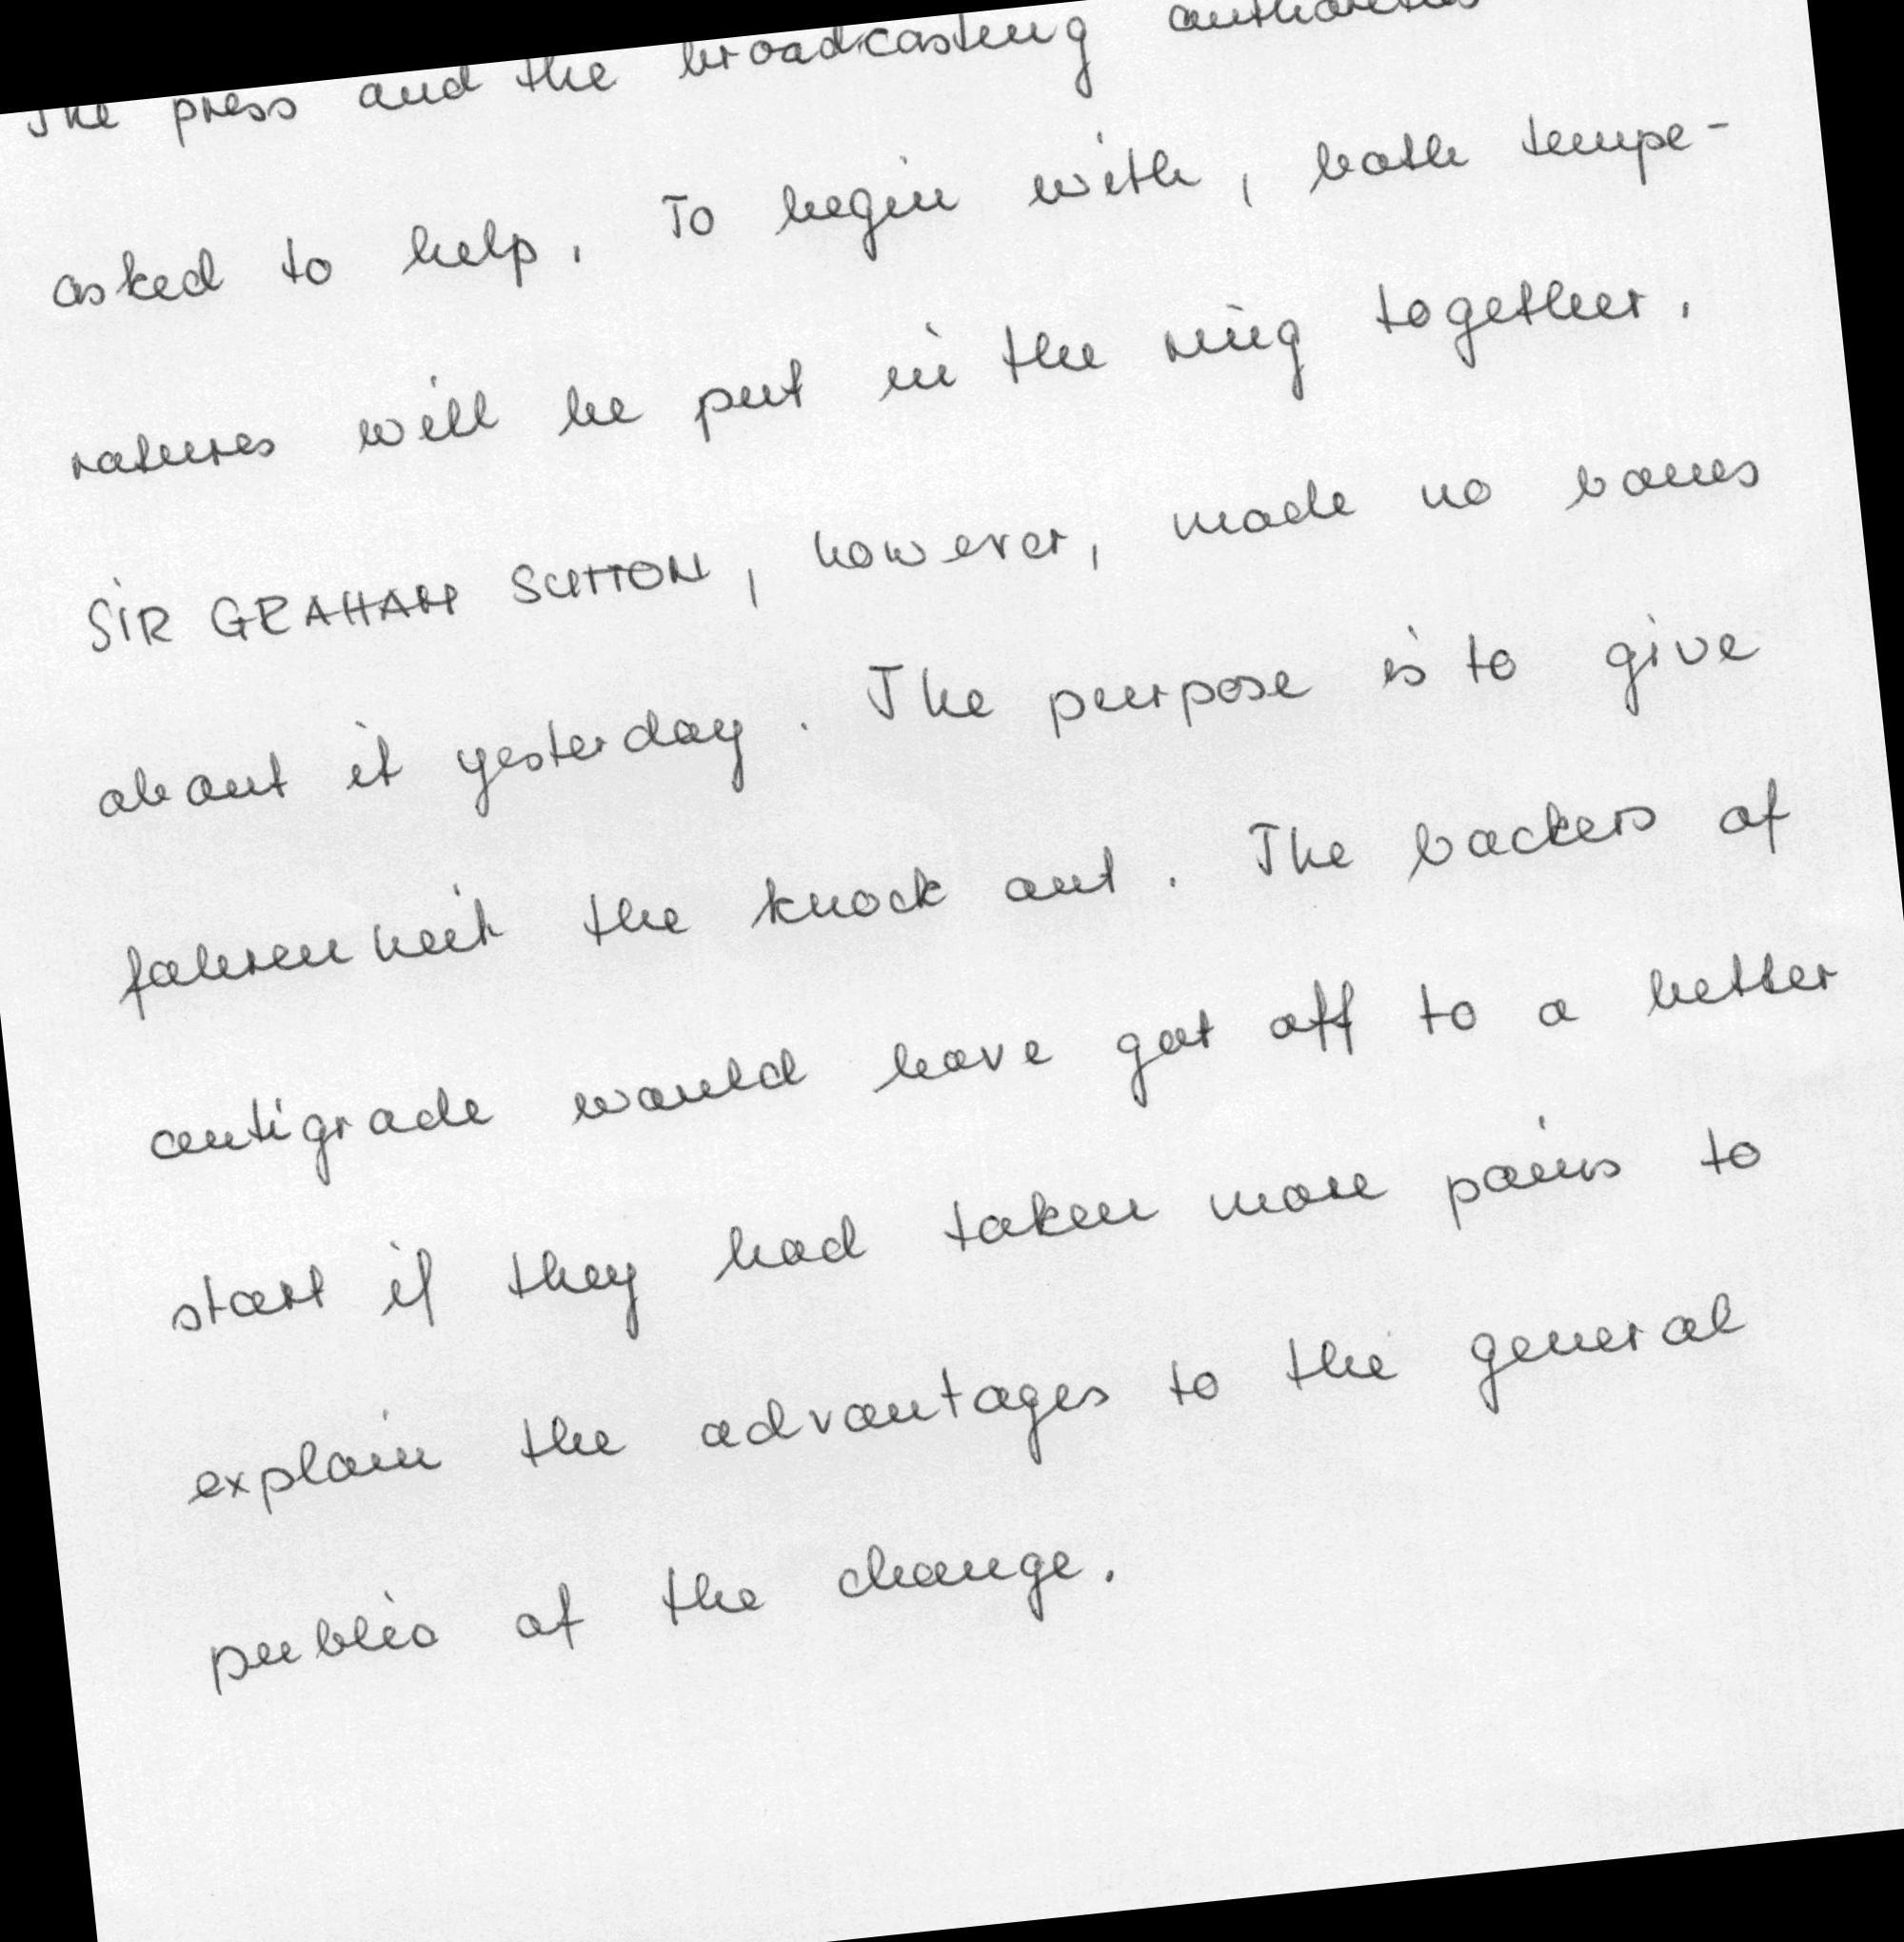 The press and the broadcasting authorities
asked to help. To begin with, both tempe-
ratures will be put in the ring together.
SIR GRAHAM SUTTON, however, made no bones
about it yesterday. The purpose is to give
fahrenheit the knock out. The backers of
centigrade would have got off to a better
start if they had taken more pains to
explain the advantages to the general
public of the change.